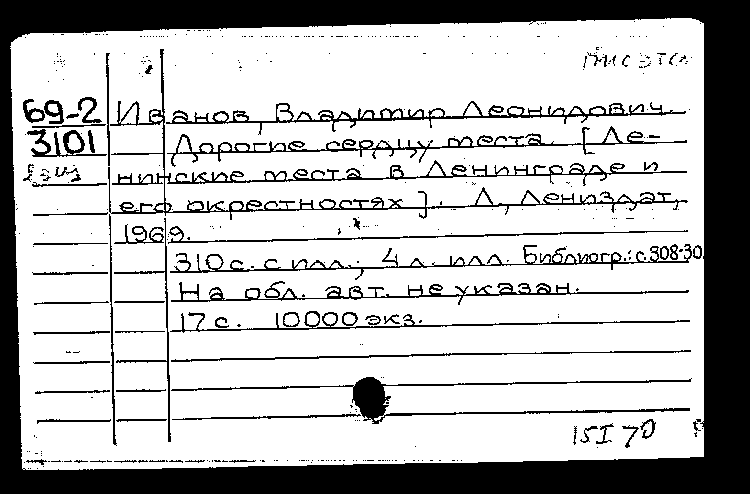 69-2 Иванов, Владимир Леонидович.
3101 Дорогие сердцу места. [Ле-
нинские места в Ленинграде и
его окрестностях]. Л., Лениздат,
1969.
310 с. с илл.; 4 л. илл. Библиогр.: с. 308-30
На обл. авт. не указан.
17 с. 10000 экз.
15I 70